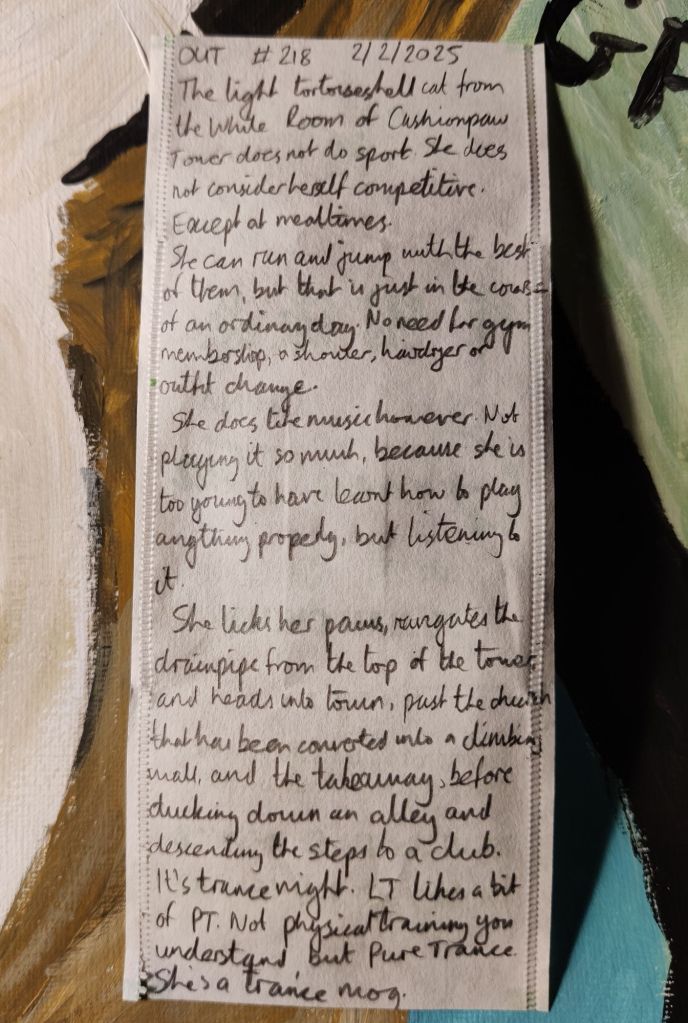 OUT # 218 2/2/2025
The light tortoiseshell cat from
the White Room of Cushionpaw
Tower does not do sport. She does
not consider herself competitive.
Except at mealtimes.
She can run and jump with the best
of them, but that is just in the course
of an ordinary day. No need for gym
membership, a shower, hairdryer or
outfit change.
She does like music however. Not
playing it so much, because she is
too young to have learnt how to play
anything properly, but listening to
it.
She licks her paws, navigates the
drainpipe from the top of the tower
and heads into town, past the church
that has been converted into a climbing
wall, and the takeaway, before
ducking down an alley and
descending the steps to a club.
It's trance night. LT likes a bit
of PT. Not physical training you
understand but Pure Trance.
She's a trance mog.